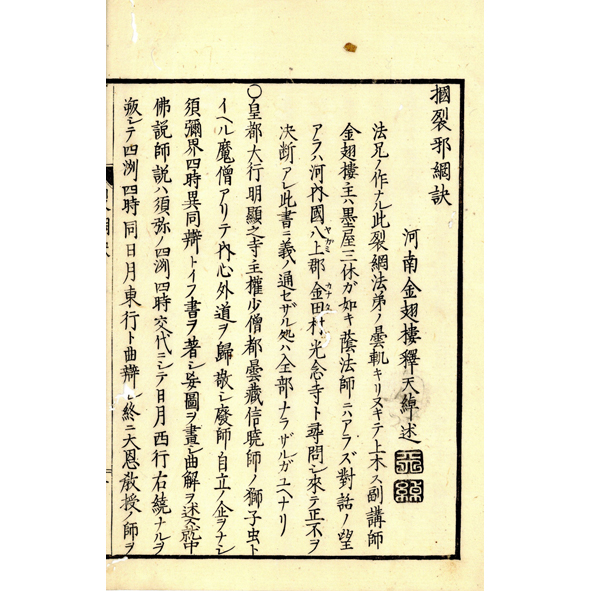 摑裂邪網訣
河南金翅樓釋天綽述
天綽
法兄ノ作ナル此裂網法弟ノ曇軌キリヌキテ上木ス副講師
金翅樓主ハ黒谷三休ガ如キ蔭法師ニハアラズ對話ノ望
アラハ河内國八上郡金田村光念寺ト尋問シ來テ正不ヲ
ヤカミ カナタ
决断アレ此書ニ義ノ通セザル処ハ全部ナラザルガユヘナリ
○皇都大行明顯之寺主權少僧都曇藏信曉師ノ獅子虫ト
イヘル魔僧アリテ内心外道ヲ歸敬シ廢師自立ノ企ヲナシ
須彌界四時異同辯トイフ書ヲ著シ妄圖ヲ畫シ曲解ヲ述ス就中
佛説師説ハ須弥ノ四洲四時交代ニシテ日月西行右繞ナルヲ
叛シテ四洲四時同日月東行ト曲辯シ終ニ大恩教授ノ師ヲ